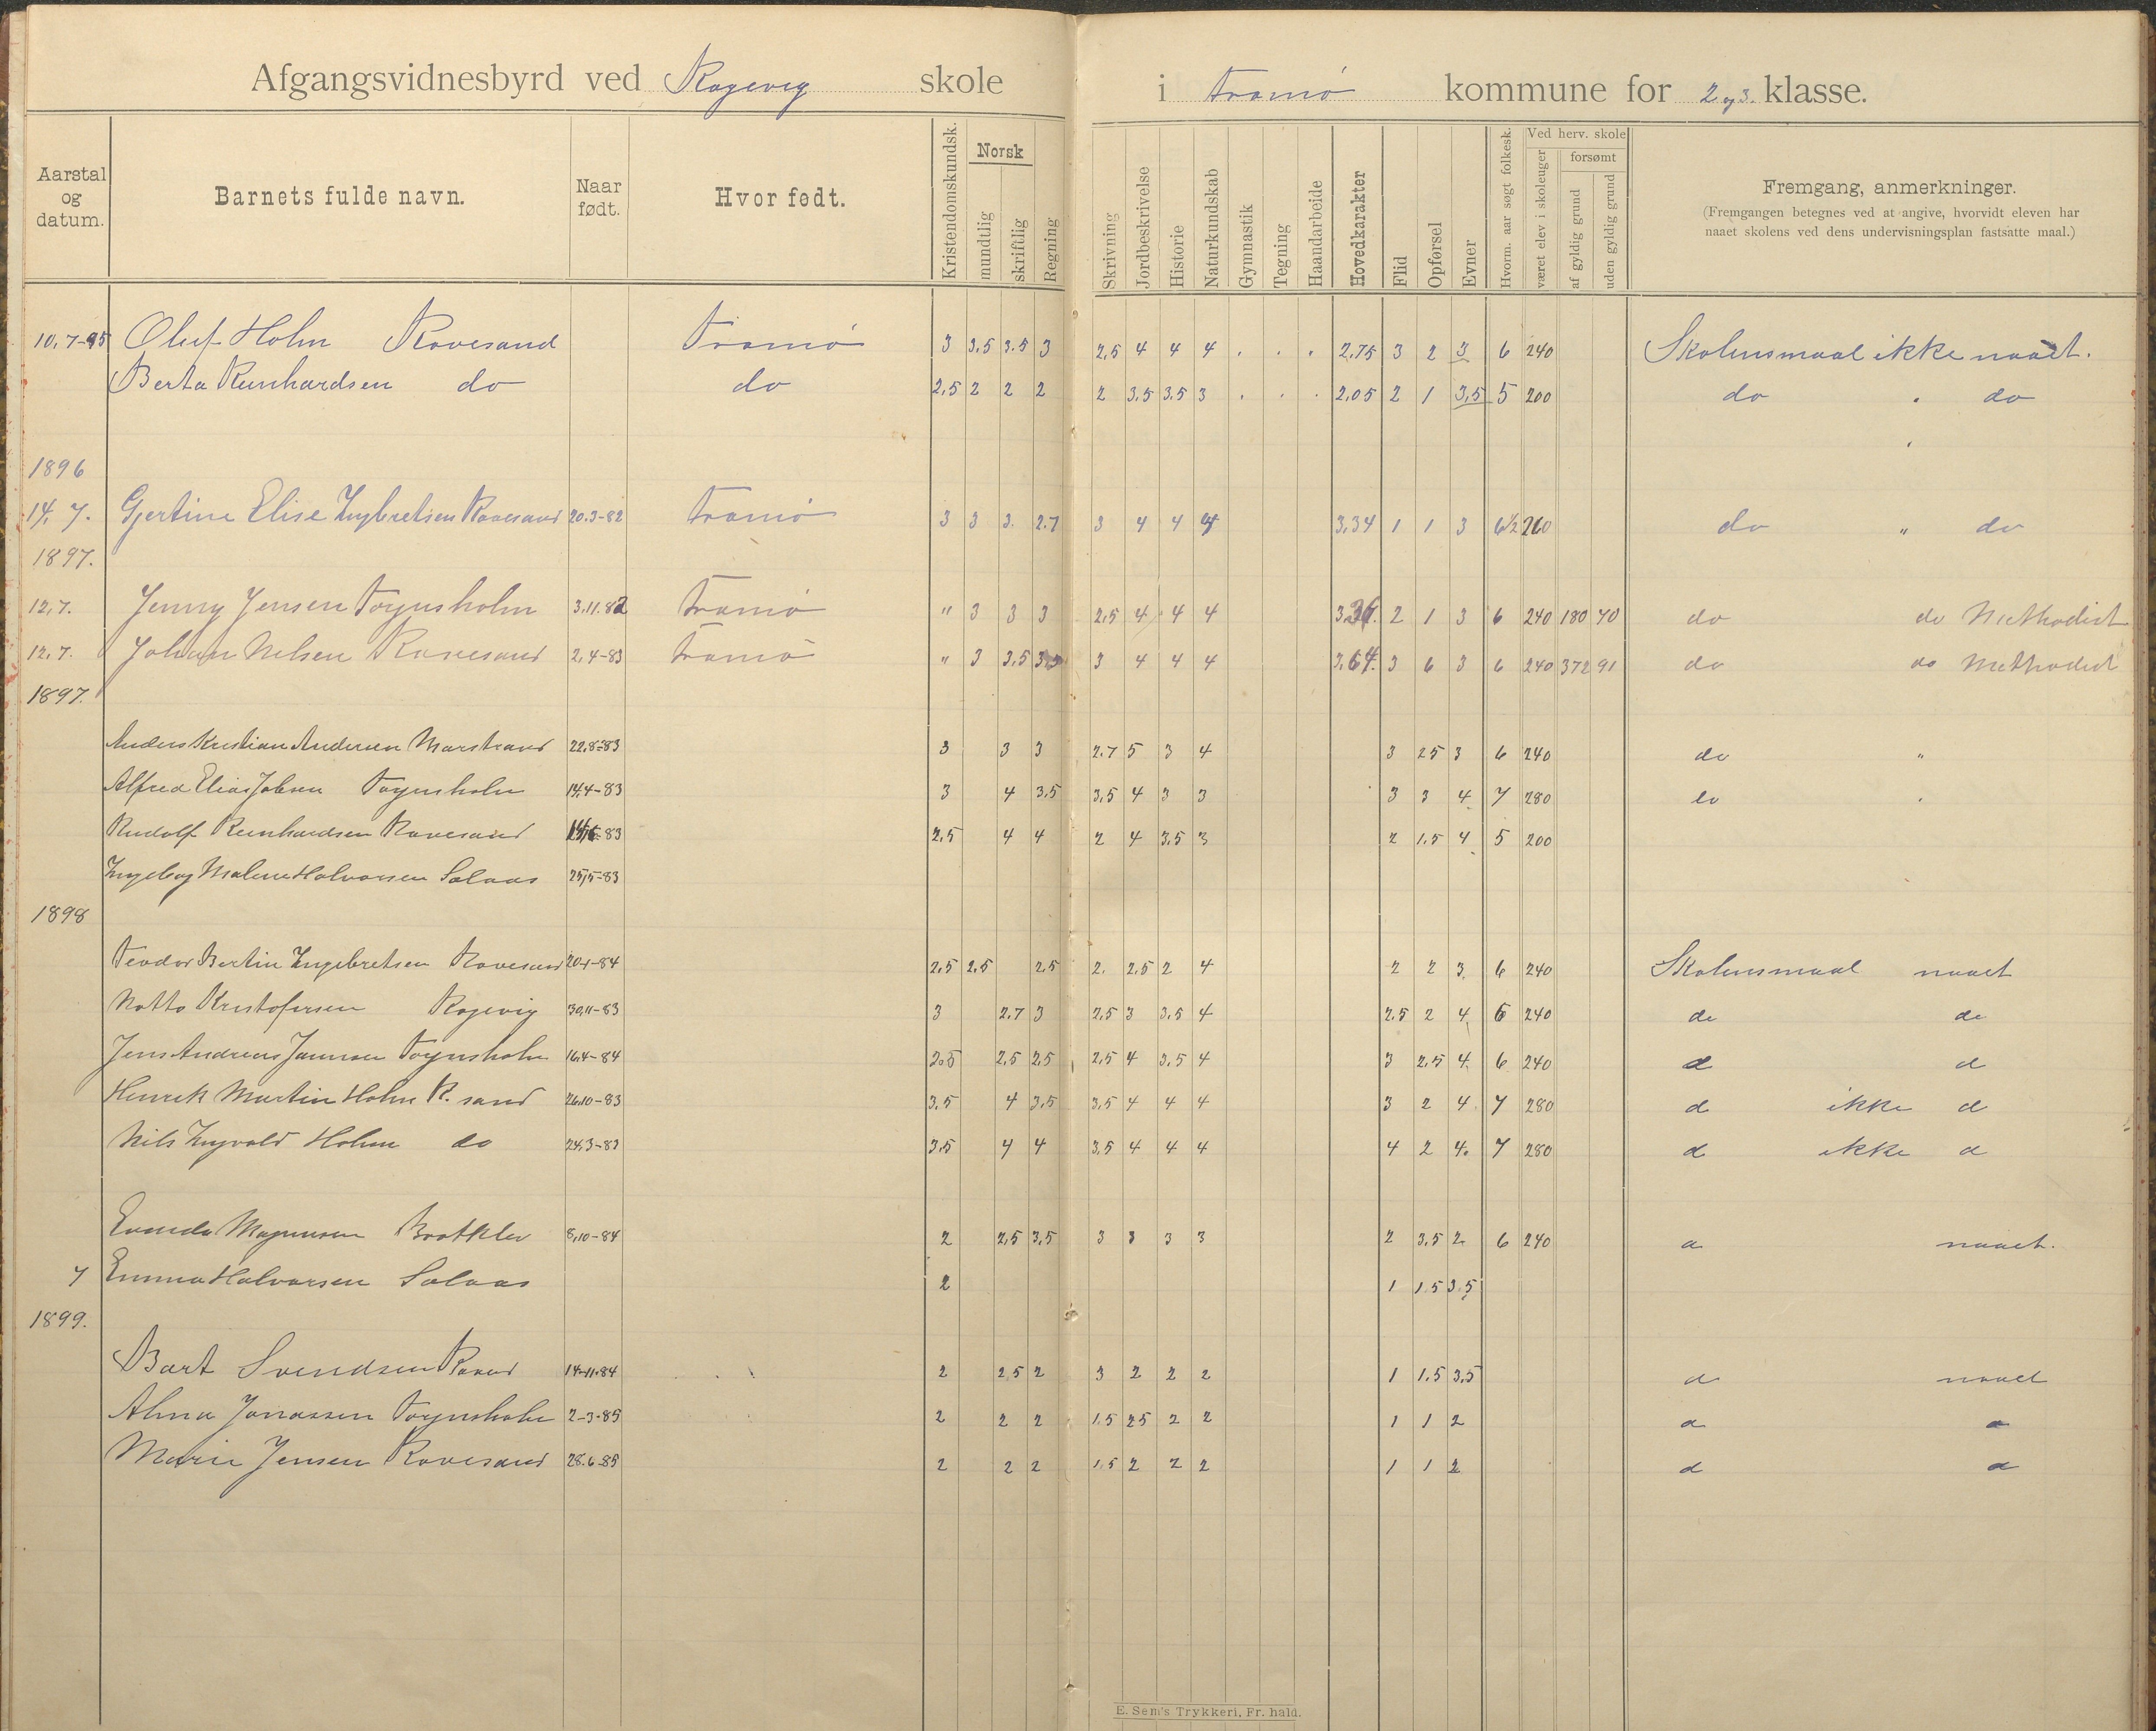 Afgangsvidnesbyrd ved Kogevig skole i Tromø kommune for 2 og 3. klasse.
Aarstal og datum. Barnets fulde navn. Naar født. Hvor født. Kristendomskundsk. Norsk mundtlig skriftlig Regning Skrivning Jordbeskrivelse Historie Naturkundskab Gymnastik Tegning Haandarbeide Hovedkarakter Flid Opførsel Evner Hvorm. aar søgt folkesk. Ved herv. skole været elev i skoleuger forsømt af gyldig grund uden gyldig grund Fremgang, anmerkninger.
(Fremgangen betegnes ved at angive, hvorvidt eleven har
naaet skolens ved dens undervisningsplan fastsatte maal.)
10.7-95 Oluf Holm Ravesand Tromø 3 3.5 3.5 3 2,5 4 4 4 . . . 2.75 3 2 3 6 240 Skolensmaal ikke naaet.
Berta Reinhardsen do do 2,5 2 2 2 2 3.5 3.5 3 . . . 2,05 2 1 3,5 5 200 do " do
1896
14. 7. Gjertine Elise Ingbretsen Ravesand 20.3-82 Tromø 3 3 3. 2.7 3 4 4 4 3,34 1 1 3 6½ 260 do " do
1897.
12.7. Jenny Jensen Tognsholm 3.11.82 Tromø " 3 3 3 2,5 4 4 4 2 1 3 6 240 180 70 do do Methodist
12.7. Johan Nilsen Ravesand 2.4-83 Tromø " 3 3,5 3 4 4 4 3,64. 3 6 3 6 240 372 91 do do Methodist
1897.
Anders Kristian Andersen Marstrand 22.8-83 3 3 3 2.7 5 3 4 3 25 3 6 240 do "
Alfred Elias Jobsen Tognsholm 14.4-83 3 4 3,5 3,5 4 3 3 3 3 4 7 280 do "
Rudolf Reinhardsen Ravesand 83 2,5 4 4 2 4 3,5 3 2 1.5 4 5 200
Ingeborg Malene Halvorsen Salaas 25,5-83
1898
Teodor Bertin Ingebretsen Ravesand 20-1-84 2,5 2,5 2,5 2. 2,5 2 4 2 2 3 6 240 Skolensmaal naaet
Notto Kristofersen Kogevig 30,11-83 3 2.7 3 2,5 3 3.5 4 2.5 2 4 6 240 do do
Jens Andreas Jannsen Tognsholm 16.4-84 2.5 2,5 2,5 2,5 4 3.5 4 3 2,5 4 6 240 d d
Henrik Martin Holm R. sand 26.10-83 3.5 4 3,5 3,5 4 4 4 3 2 4 7 280 d ikke d
Nils Ingvald Holm do 24.3-83 3.5 4 4 3,5 4 4 4 4 2 4. 7 280 d ikke d
Evenda Magnussen Bratklev 8,10-84 2 2,5 3,5 3 3 3 3 2 3,5 2 6 240 d naaet.
7 Emma Halvorsen Salaas 2 1 1.5 3.5
1899.
Bart Svendsen Ravesd 14-11-84 2 2,5 2 3 2 2 2 1 1.5 3,5 d naaet
Alma Jonassen Tognsholm 2-3-85 2 2 2 1.5 2,5 2 2 1 1 2 d d
Marie Jensen Ravesand 28.6.85 2 2 2 1,5 2 2 2 1 1 2 d d
E. Sem's Trykkeri, Fr. hald.